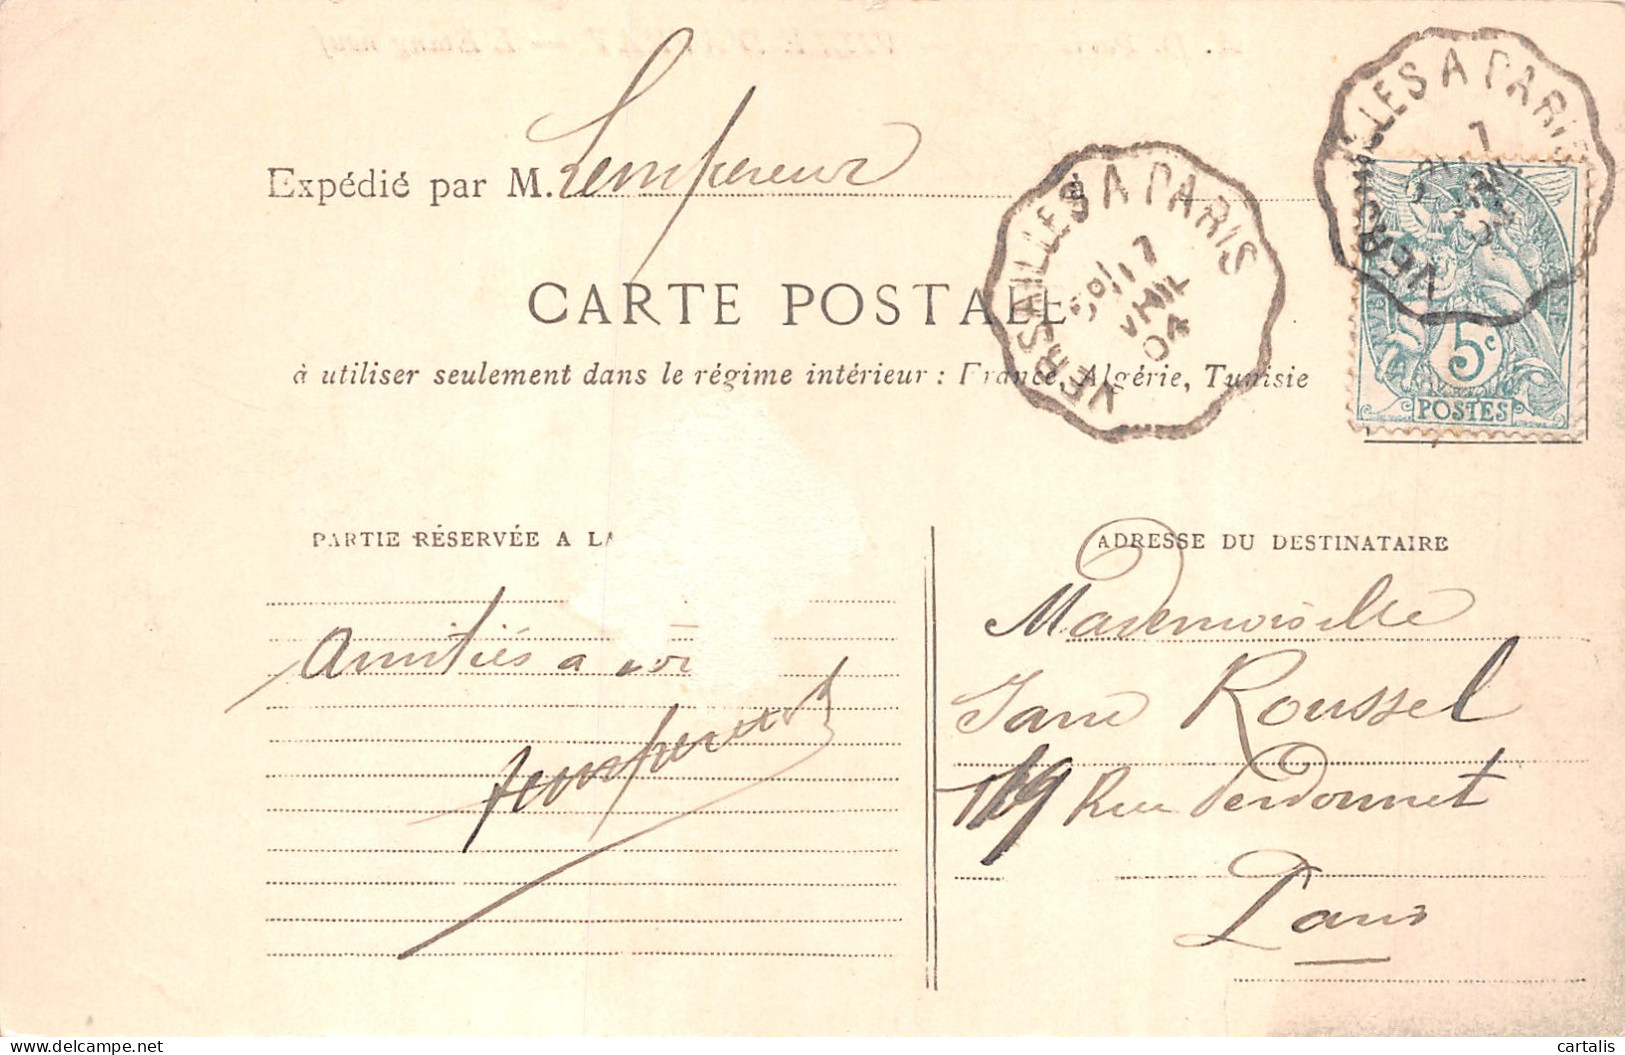 Expédié par M. Lempereur
VERSAILLES A PARIS
17
04
VERSAILLES A PARIS
5c
POSTES
CARTE POSTALE
à utiliser seulement dans le régime intérieur : France, Algérie, Tunisie
PARTIE RÉSERVÉE A LA
Amitiés a
Lempereur
ADRESSE DU DESTINATAIRE
Mademoiselle
Jane Roussel
19 Rue Perdonnet
Paris
cartalis